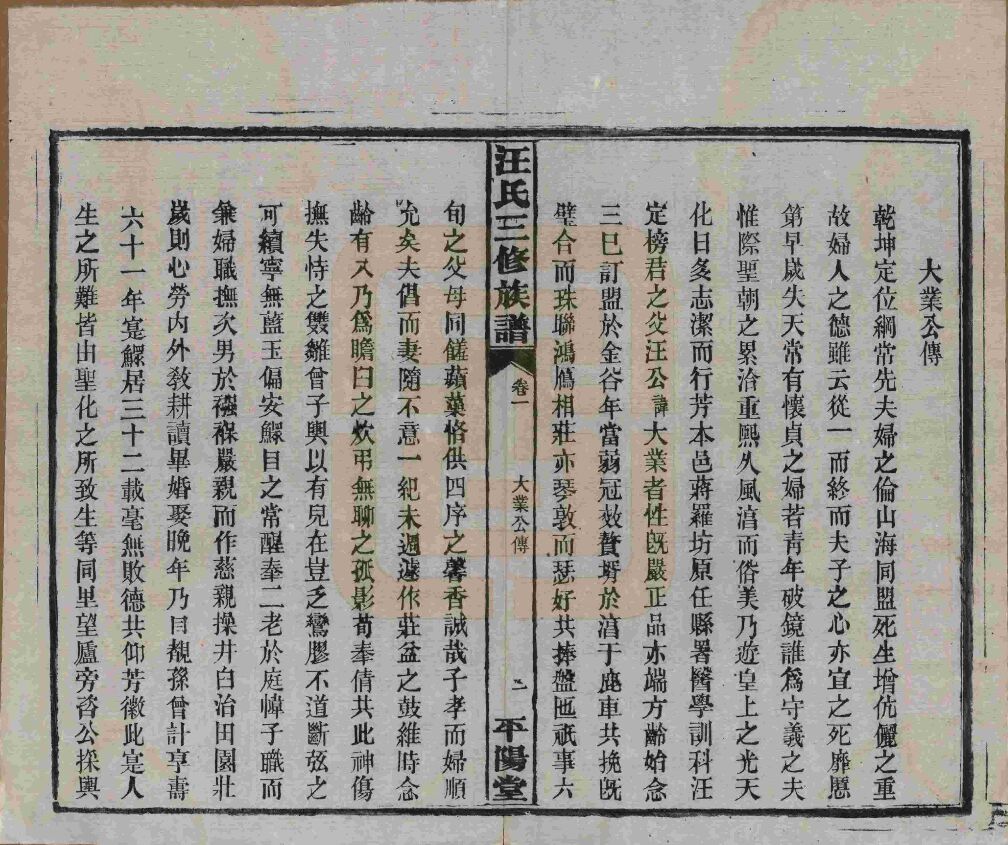 大業公傳
乾坤定位綱常先夫婦之倫山海同盟死生增伉儷之重
故婦人之德雖云從一而終而夫子之心亦宜之死靡慝
第早歲失天常有懷貞之婦若青年破鏡誰為守義之夫
惟際聖朝之累洽重熙久風淯而俗美乃遊皇上之光天
化日多志潔而行芳本邑蔣羅坊原任縣署醫學訓科汪
定榜君之父汪公諱大業者性旣嚴正品亦端方齡始念
三巳訂盟於金谷年當弱冠效贅壻於淯于鹿車共挽旣
璧合而珠聯鴻鴈相莊亦琴敦而瑟好共捧盤匜祇事六
汪氏三修族譜 卷一 大業公傳 二 平陽堂
旬之父母同饈蘋蘩恪供四序之馨香誠哉子孝而婦順
允矣夫倡而妻隨不意一紀未週遽作莊盆之鼓維時念
齡有又乃爲瞻臼之炊弔無聊之孤影荀奉倩共此神傷
撫失恃之雙雛曾子輿以有兒在豈乏鸞膠不道斷弦之
可續寧無藍玉偏安鰥目之常醒奉二老於庭幃子職而
兼婦職撫次男於襁褓嚴親而作慈親操井臼治田園壯
歲則心勞内外教耕讀畢婚娶晚年乃目覩孫曾計亨壽
六十一年寔鰥居三十二載毫無敗德共仰芳徽此寔人
生之所難皆由聖化之所致生等同里望廬旁咨公採輿